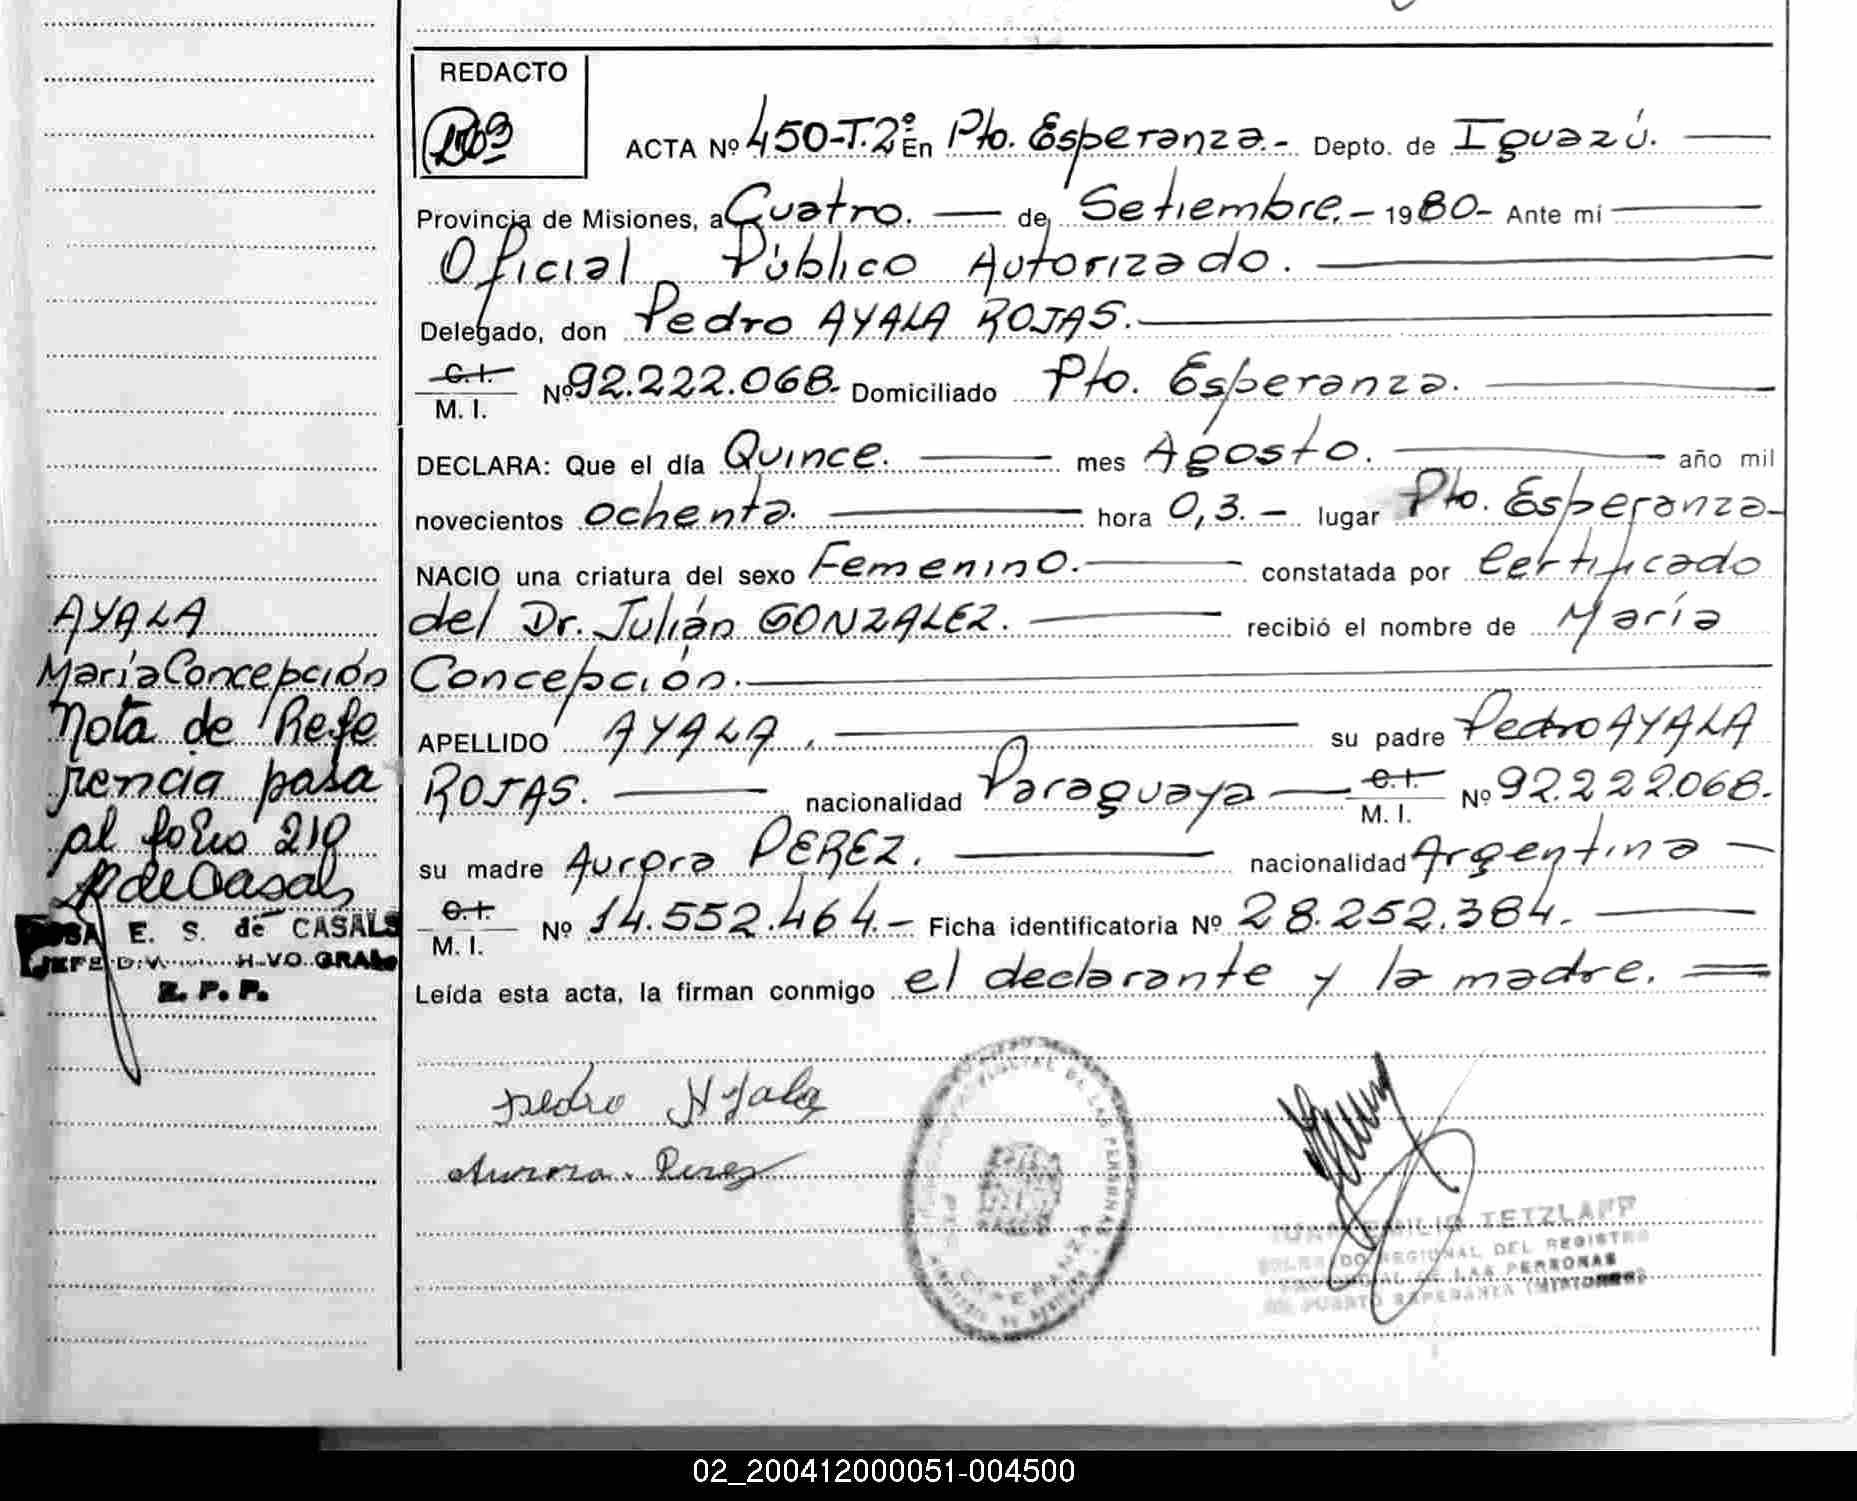 REDACTO
ACTA Nº 450-T.2º En Pto. Esperanza.- Depto. de Iguazú.
Provincia de Misiones, a Cuatro. de Setiembre.- 1980- Ante mí
Oficial Público Autorizado.
Delegado, don Pedro AYALA ROJAS.
C.I.
M. I. Nº 92.222.068. Domiciliado Pto. Esperanza.
DECLARA: Que el día Quince. mes Agosto. año mil
novecientos ochenta. hora 0,3.- lugar Pto. Esperanza-
NACIO una criatura del sexo Femenino. constatada por Certificado
del Dr. Julián GONZALEZ. recibió el nombre de María
Concepción.
APELLIDO AYALA. su padre Pedro AYALA
ROJAS. nacionalidad Paraguaya C.I.
M. I. Nº 92.222.068.
su madre Aurora PEREZ. nacionalidad Argentina
C.I.
M. I. Nº 14.552.464.- Ficha identificatoria Nº 28.252.384.
Leída esta acta, la firman conmigo el declarante y la madre.
AYALA
María Concepción
Nota de Refe
rencia pasa
al folio 219
de Casals
E. S. de CASALS
R. P. P.
Pedro Ayala
Aurora. Perez
EMILIO TETZLAFF
REGIONAL DEL REGISTRO
PROVINCIAL DE LAS PERSONAS
DE PUERTO ESPERANZA (MISIONES)
02_200412000051-004500